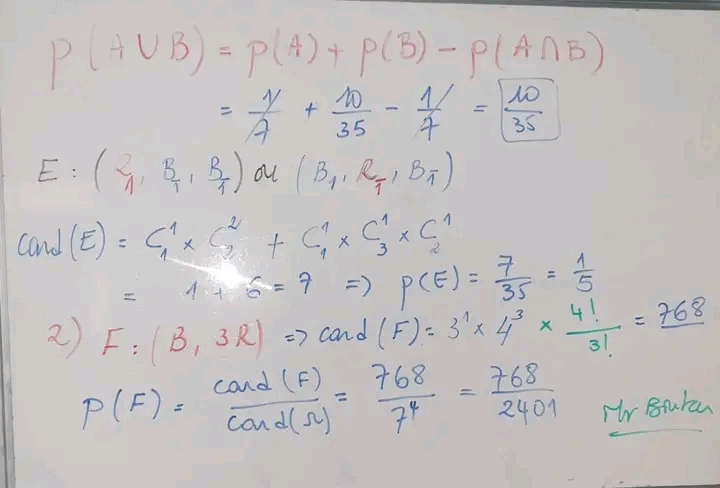 P(A∪B) = p(A) + p(B) - p(A∩B)
= 1/7 + 10/35 - 1/7 = 10/35
E : (R₁, B_1̄, B_1̄) ou (B₁, R_1̄, B_1̄)
card(E) = C₁¹ × C₂² + C₁¹ × C₃¹ × C₂¹
= 1 + 6 = 7 => p(E) = 7/35 = 1/5
2) F : (B, 3R) => card(F) = 3¹ × 4³ × 4!/3! = 768
P(F) = card(F)/card(Ω) = 768/7⁴ = 768/2401